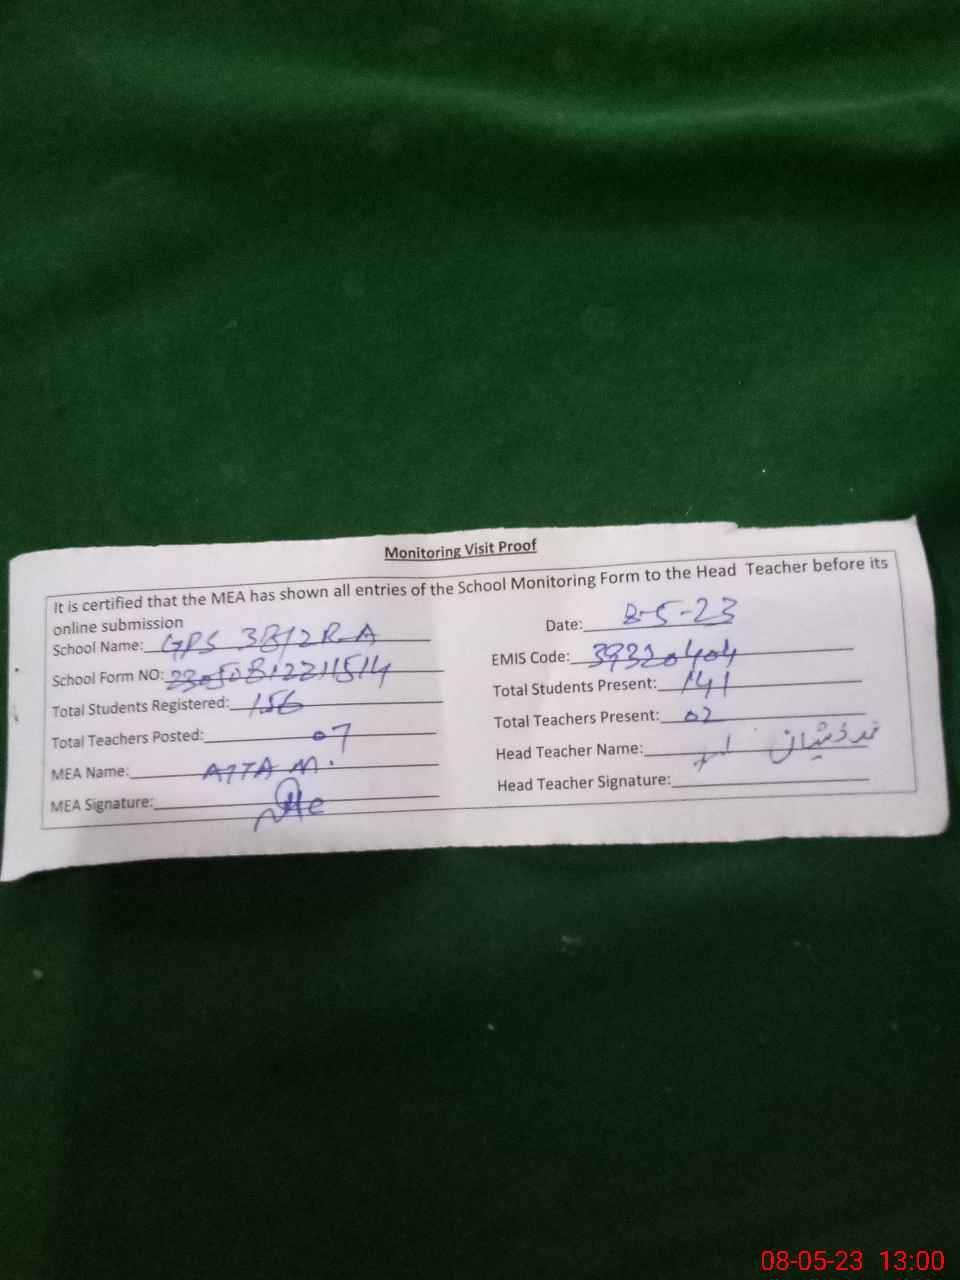 Monitoring Visit Proof
It is certified that the MEA has shown all entries of the School Monitoring Form to the Head Teacher before its
online submission
Date: 8-5-23
School Name: GPS 3B/2R-A
EMIS Code: 39320404
School Form NO: 23050812211514
Total Students Present: 141
Total Students Registered: 156
Total Teachers Present: 02
Total Teachers Posted: 07
Head Teacher Name:
MEA Name: ATTA M.
Head Teacher Signature:
MEA Signature:
08-05-23 13:00